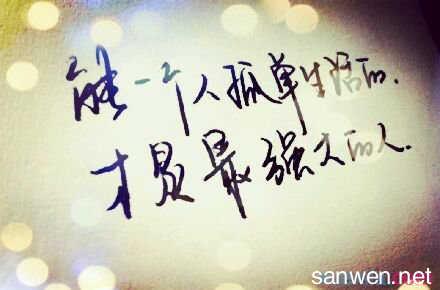 能一个人孤单生活的.
才是最强大的人.
sanwen.net